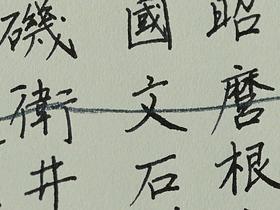 昭麿根
國文石
磯衛井